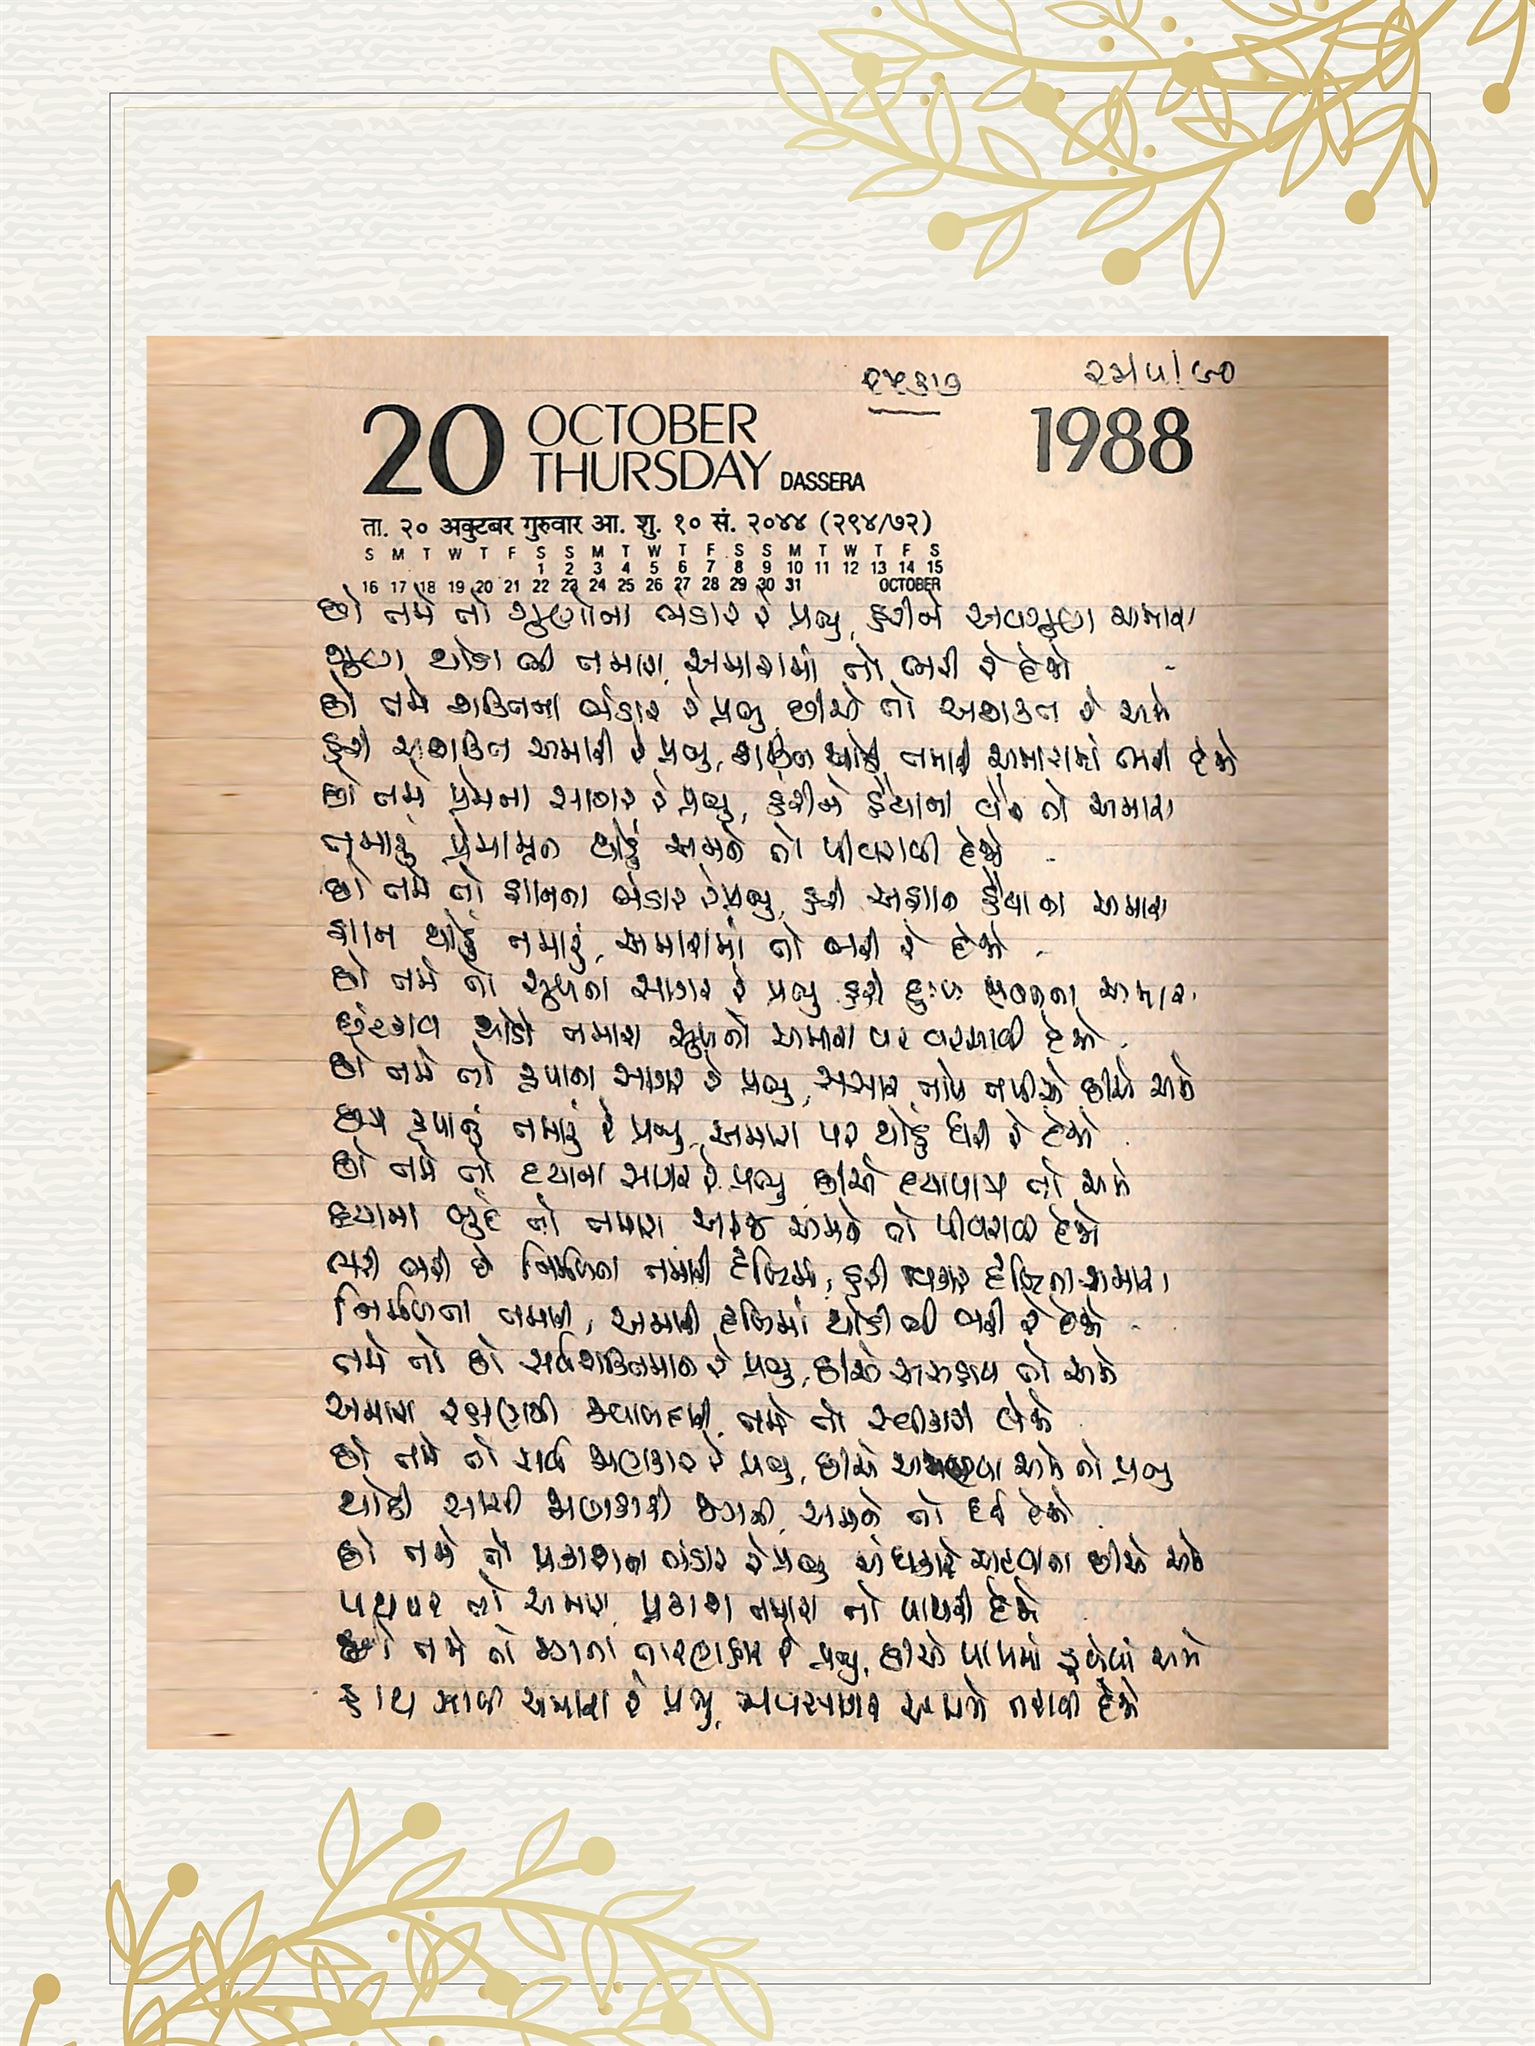 ૨૩/૫/૯૦
20 OCTOBER 1988
THURSDAY DASSERA
ता. २० अक्टबर गुरुवार आ. शु. १० सं. २०४४ (२९४/७२)
S M T W T F S S M T W T F S S M T W T F S
1 2 3 4 5 6 7 8 9 10 11 12 13 14 15
16 17 18 19 20 21 22 23 24 25 26 27 28 29 30 31 OCTOBER
છો તમે તો ગુણોના ભંડાર રે પ્રભુ, હરીને અવગુણ અમારા
ગુણ થોડા બી તમારા, અમારામાં તો ભરી રે દેજો
છો તમે શક્તિના ભંડાર રે પ્રભુ છીએ તો અશક્ત રે અમે
હરી અશક્તિ અમારી રે પ્રભુ, શક્તિ થોડી તમારી અમારામાં ભરી દેજો
છો તમે પ્રેમના સાગર રે પ્રભુ, હરીને હૈયાના વેર તો અમારા
તમારું પ્રેમામૃત થોડું અમને તો પીવરાવી દેજો
છો તમે તો જ્ઞાનના ભંડાર રે પ્રભુ, હરી અજ્ઞાન હૈયાના અમારા
જ્ઞાન થોડું તમારું, અમારામાં તો ભરી રે દેજો
છો તમે તો સુખના સાગર રે પ્રભુ હરી દુઃખ જીવનના અમારા
છંટકાવ થોડો તમારા સુખનો અમારા પર વરસાવી દેજો
છો તમે તો કૃપાના સાગર રે પ્રભુ, સંસાર તાપે તપીએ છીએ અમે
છત્ર કૃપાનું તમારું રે પ્રભુ, અમારા પર થોડું ધરી રે દેજો
છો તમે તો દયાના સાગર રે પ્રભુ છીએ દયાપાત્ર તો અમે
દયાના બુંદ તો તમારા અમને તો પીવરાવી દેજો
ભરી ભરી છે નિર્મળતા તમારી દૃષ્ટિમાં, હરી વિકાર દૃષ્ટિના અમારા
નિર્મળતા તમારી, અમારી દૃષ્ટિમાં થોડી બી ભરી રે દેજો
તમે તો છો સર્વશક્તિમાન રે પ્રભુ, છીએ અસહાય તો અમે
અમારા રક્ષણની જવાબદારી, તમે તો સ્વીકારી લેજો
છો તમે તો સર્વ જાણકાર રે પ્રભુ, છીએ અજાણ્યા અમે તો પ્રભુ
થોડી સાચી જાણકારી જગની, અમને તો દઈ દેજો
છો તમે તો પ્રકાશના ભંડાર રે પ્રભુ અંધકારે અટવાતા છીએ અમે
પથ પર તો અમારા, પ્રકાશ તમારા તો પાથરી દેજો
છો તમે તો જગના તારણહાર રે પ્રભુ, છીએ પાપમાં ડૂબેલાં અમે
હાથ ઝાલી અમારા રે પ્રભુ, ભવસાગર અમને તરાવી દેજો